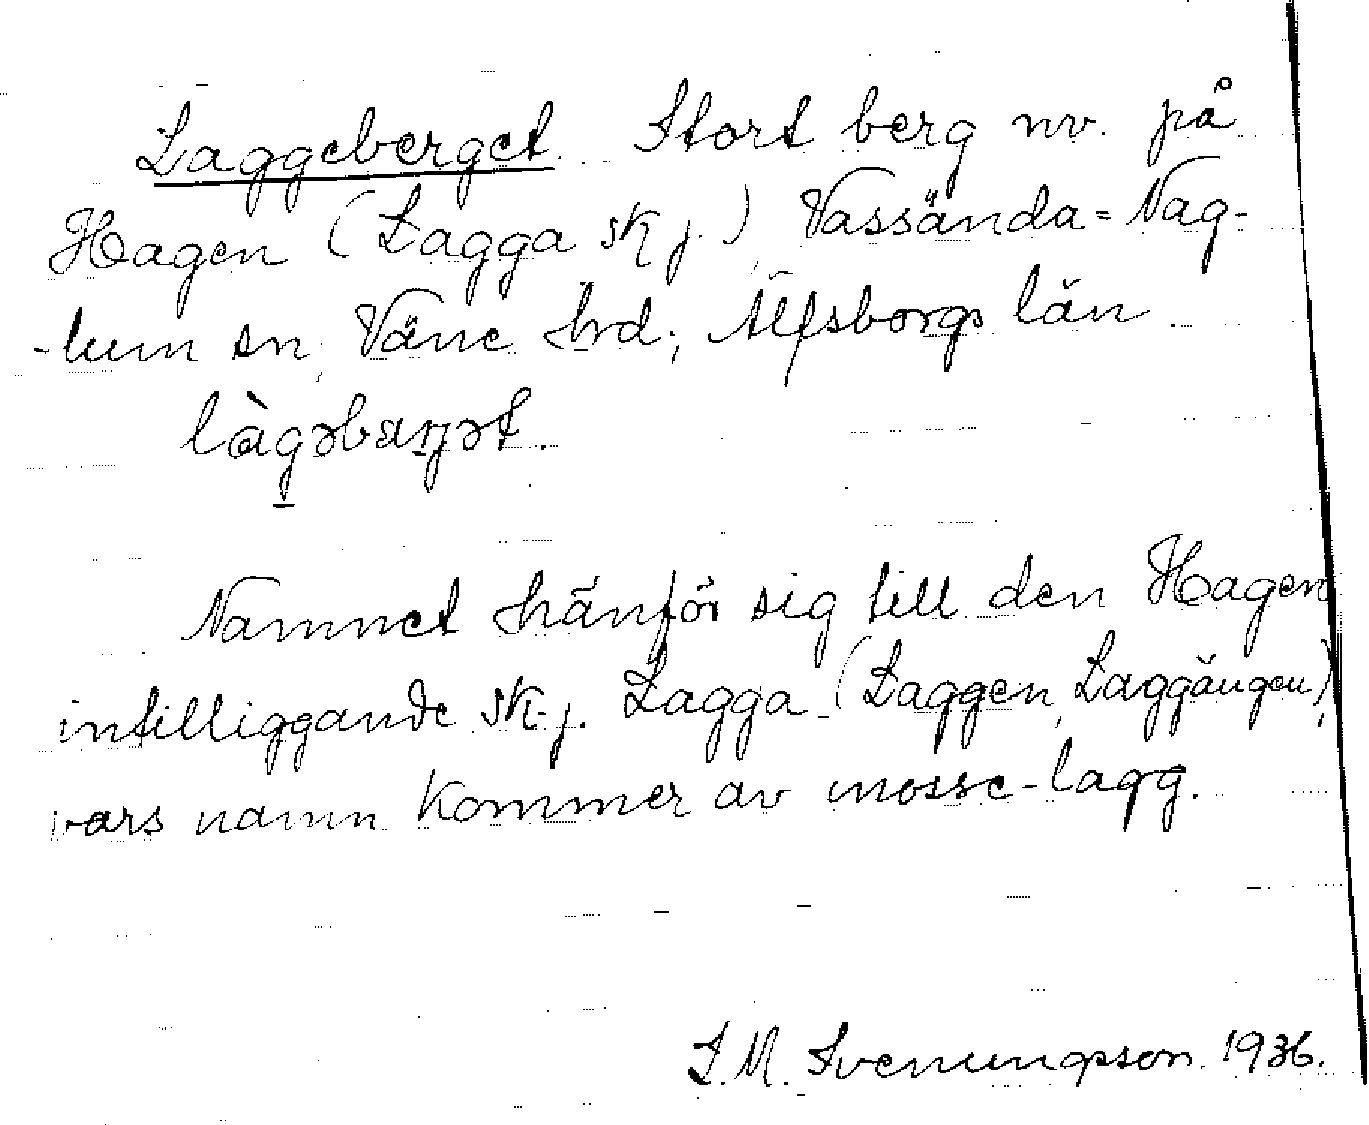 Laggeberget. Stort berg nv. på
Hagen (Lagga skj.), Vassända-Nag-
-lum sn, Väne hrd; Älfsborgs län
làgəbærjət.
Namnet hänför sig till den Hagen
intilliggande skj. Lagga (Laggen, Laggängen),
vars namn kommer av mosse-lagg.
I. M. Svenungsson 1936.